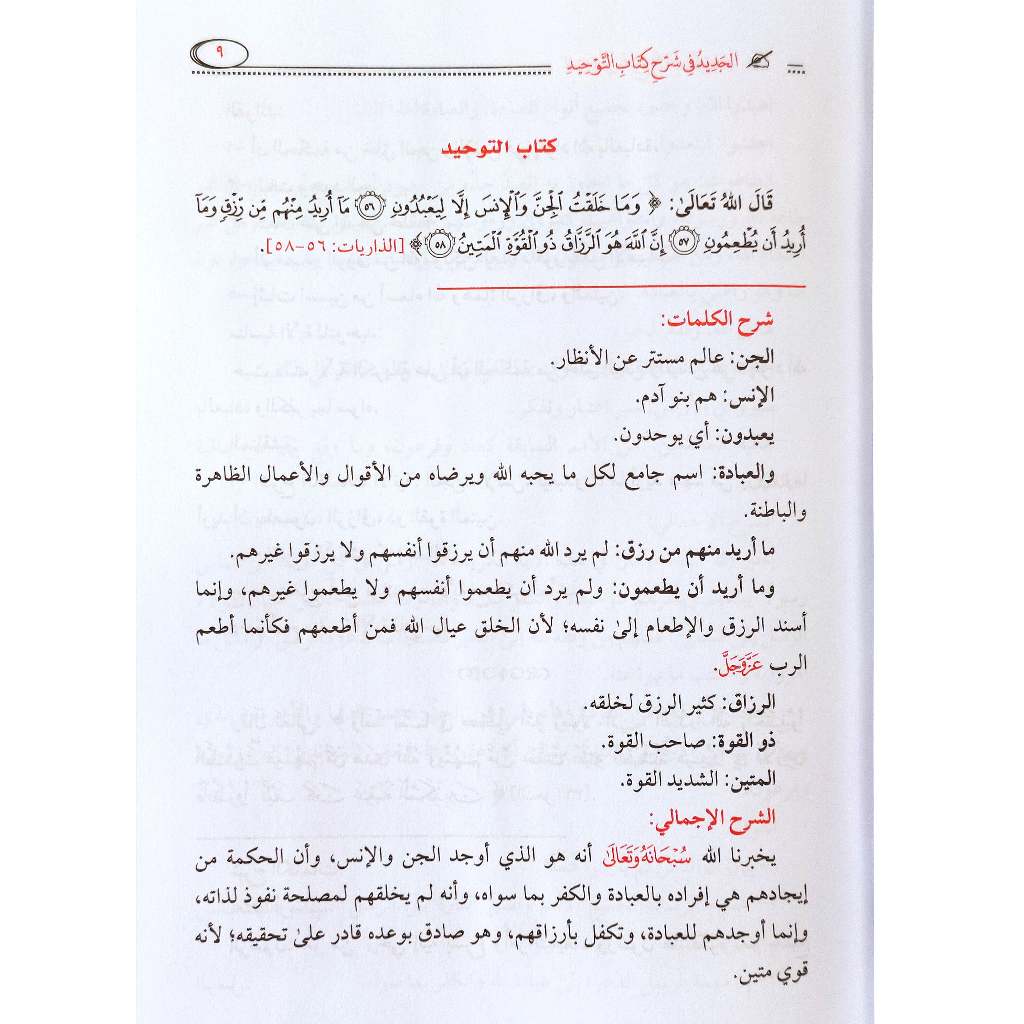 الجديد في شرح كتاب التوحيد
٩
كتاب التوحيد
قَالَ اللهُ تَعَالَىٰ: ﴿ وَمَا خَلَقْتُ ٱلْجِنَّ وَٱلْإِنسَ إِلَّا لِيَعْبُدُونِ ٥٦ مَآ أُرِيدُ مِنْهُم مِّن رِّزْقٍ وَمَآ
أُرِيدُ أَن يُطْعِمُونِ ٥٧ إِنَّ ٱللَّهَ هُوَ ٱلرَّزَّاقُ ذُو ٱلْقُوَّةِ ٱلْمَتِينُ ٥٨ ﴾ [الذاريات: ٥٦-٥٨].
شرح الكلمات:
الجن: عالم مستتر عن الأنظار.
الإنس: هم بنو آدم.
يعبدون: أي يوحدون.
والعبادة: اسم جامع لكل ما يحبه الله ويرضاه من الأقوال والأعمال الظاهرة
والباطنة.
ما أريد منهم من رزق: لم يرد الله منهم أن يرزقوا أنفسهم ولا يرزقوا غيرهم.
وما أريد أن يطعمون: ولم يرد أن يطعموا أنفسهم ولا يطعموا غيرهم، وإنما
أسند الرزق والإطعام إلىٰ نفسه؛ لأن الخلق عيال الله فمن أطعمهم فكأنما أطعم
الرب عَزَّوَجَلَّ.
الرزاق: كثير الرزق لخلقه.
ذو القوة: صاحب القوة.
المتين: الشديد القوة.
الشرح الإجمالي:
يخبرنا الله سُبْحَانَهُ وَتَعَالَىٰ أنه هو الذي أوجد الجن والإنس، وأن الحكمة من
إيجادهم هي إفراده بالعبادة والكفر بما سواه، وأنه لم يخلقهم لمصلحة نفوذ لذاته،
وإنما أوجدهم للعبادة، وتكفل بأرزاقهم، وهو صادق بوعده قادر علىٰ تحقيقه؛ لأنه
قوي متين.